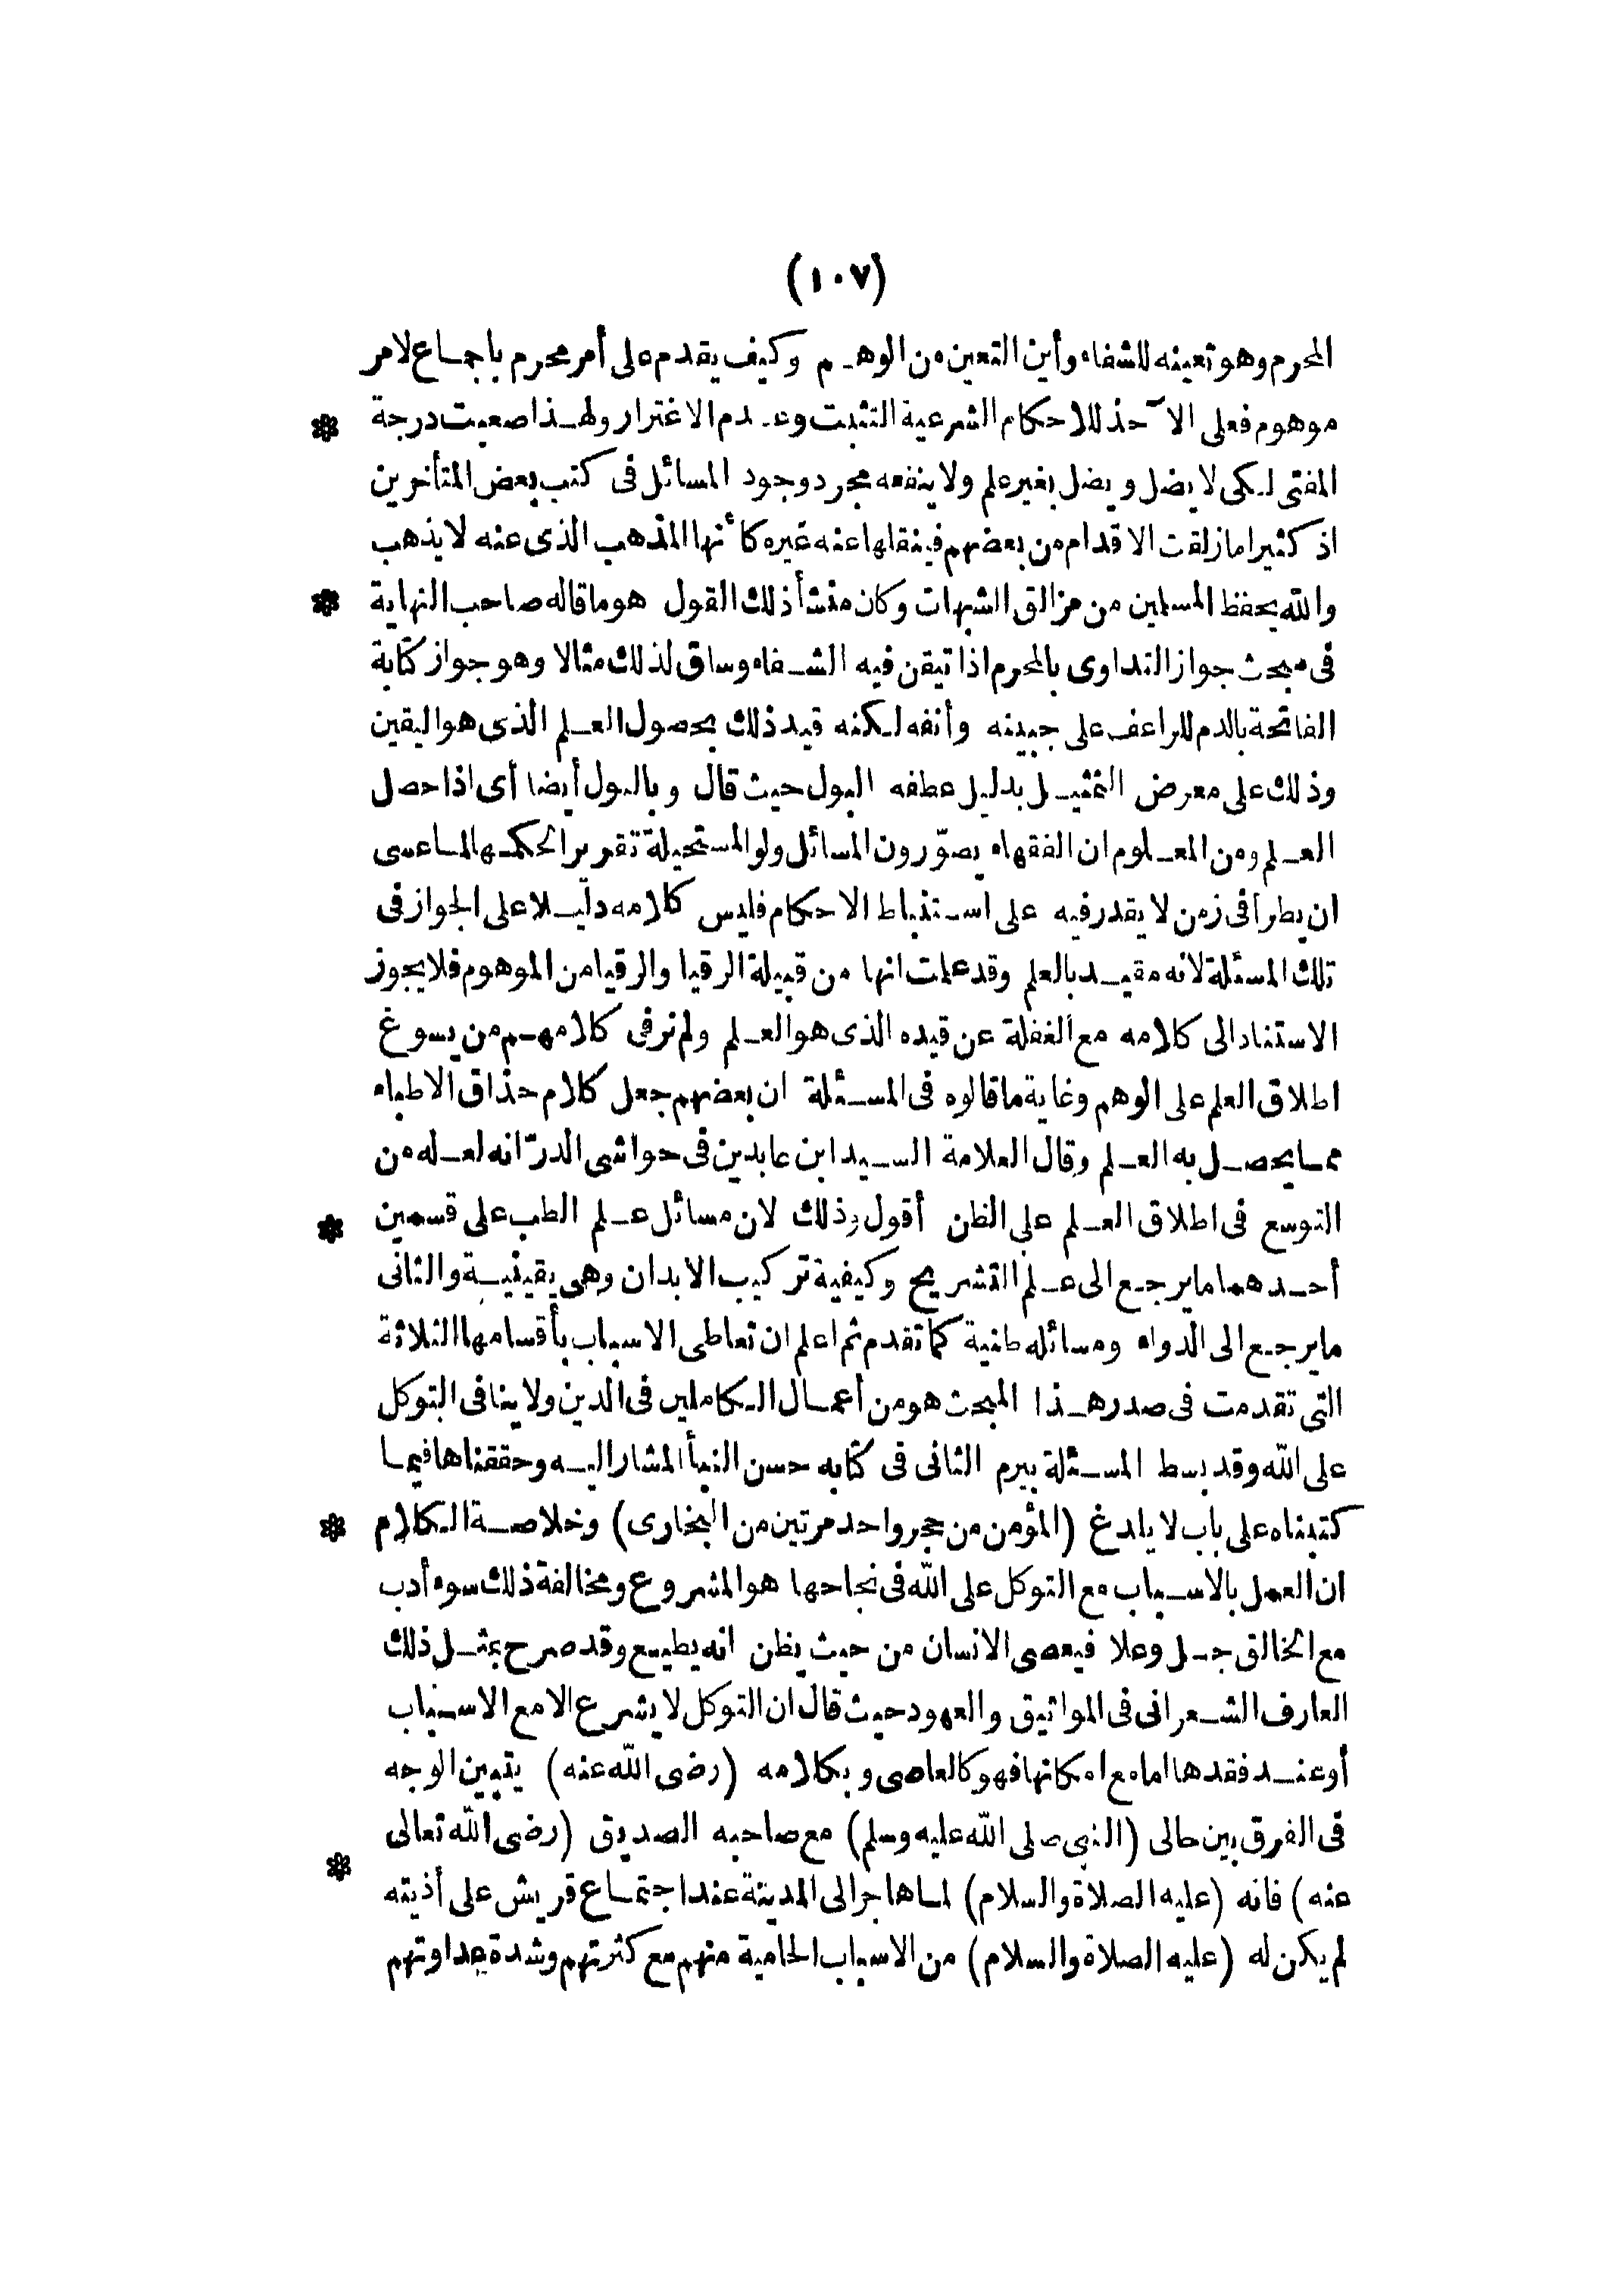 (١٠٧)
المحرم وهو تعينه للشفاء وأين التعين من الوهم وكيف يقدم على أمر محرم باجماع لامر
موهوم فعلى الآخذ للاحكام الشرعية التثبت وعدم الاغترار ولهذا صعبت درجة *
المفتى لكى لا يضل ويضل بغير علم ولا ينفعه مجرد وجود المسائل فى كتب بعض المتأخرين
اذ كثيرا ما زلقت الاقدام من بعضهم فينقلها عنه غيره كأنها المذهب الذى عنه لا يذهب
والله يحفظ المسلمين من مزالق الشبهات وكان منشأ ذلك القول هو ما قاله صاحب النهاية *
فى مبحث جواز التداوى بالمحرم اذا تيقن فيه الشفاء وساق لذلك مثالا وهو جواز كتابة
الفاتحة بالدم للراعف على جبينه وأنفه لكنه قيد ذلك بحصول العلم الذى هو اليقين
وذلك على معرض التمثيل بدليل عطفه البول حيث قال وبالبول أيضا أى اذا حصل
العلم ومن المعلوم ان الفقهاء يصوّرون المسائل ولو المستحيلة تقريرا لحكمها لما عسى
ان يطرأ فى زمن لا يقدر فيه على استنباط الاحكام فليس كلامه دليلا على الجواز فى
تلك المسئلة لانه مقيد بالعلم وقد علمت انها من قبيلة الرقيا والرقيا من الموهوم فلا يجوز
الاستناد الى كلامه مع الغفلة عن قيده الذى هو العلم ولم نر فى كلامهم من يسوغ
اطلاق العلم على الوهم وغاية ما قالوه فى المسئلة ان بعضهم جعل كلام حذاق الاطباء
مما يحصل به العلم وقال العلامة السيد ابن عابدين فى حواشى الدرّ انه لعله من
التوسع فى اطلاق العلم على الظن أقول وذلك لان مسائل علم الطب على قسمين *
أحدهما ما يرجع الى علم التشريح وكيفية تركيب الابدان وهى يقينية والثانى
ما يرجع الى الدواء ومسائله ظنية كما تقدم ثم اعلم ان تعاطى الاسباب بأقسامها الثلاثة
التى تقدمت فى صدر هذا المبحث هو من أعمال الكاملين فى الدين ولا ينافى التوكل
على الله وقد بسط المسئلة بيرم الثانى فى كتابه حسن النبأ المشار اليه وحققناها فيما
كتبناه على باب لا يلدغ (المؤمن من جحر واحد مرتين من البخارى) وخلاصة الكلام *
ان العمل بالاسباب مع التوكل على الله فى نجاحها هو المشروع ومخالفة ذلك سوء أدب
مع الخالق جل وعلا فيعصى الانسان من حيث يظن انه يطيع وقد صرح بمثل ذلك
العارف الشعرانى فى المواثيق والعهود حيث قال ان التوكل لا يشرع الا مع الاسباب
أو عند فقدها اما مع امكانها فهو كالعاصى وبكلامه (رضى الله عنه) يتبين الوجه
فى الفرق بين حالى (النبى صلى الله عليه وسلم) مع صاحبه الصديق (رضى الله تعالى *
عنه) فانه (عليه الصلاة والسلام) لما هاجر الى المدينة عند اجتماع قريش على أذيته
لم يكن له (عليه الصلاة والسلام) من الاسباب الحامية منهم مع كثرتهم وشدة عداوتهم